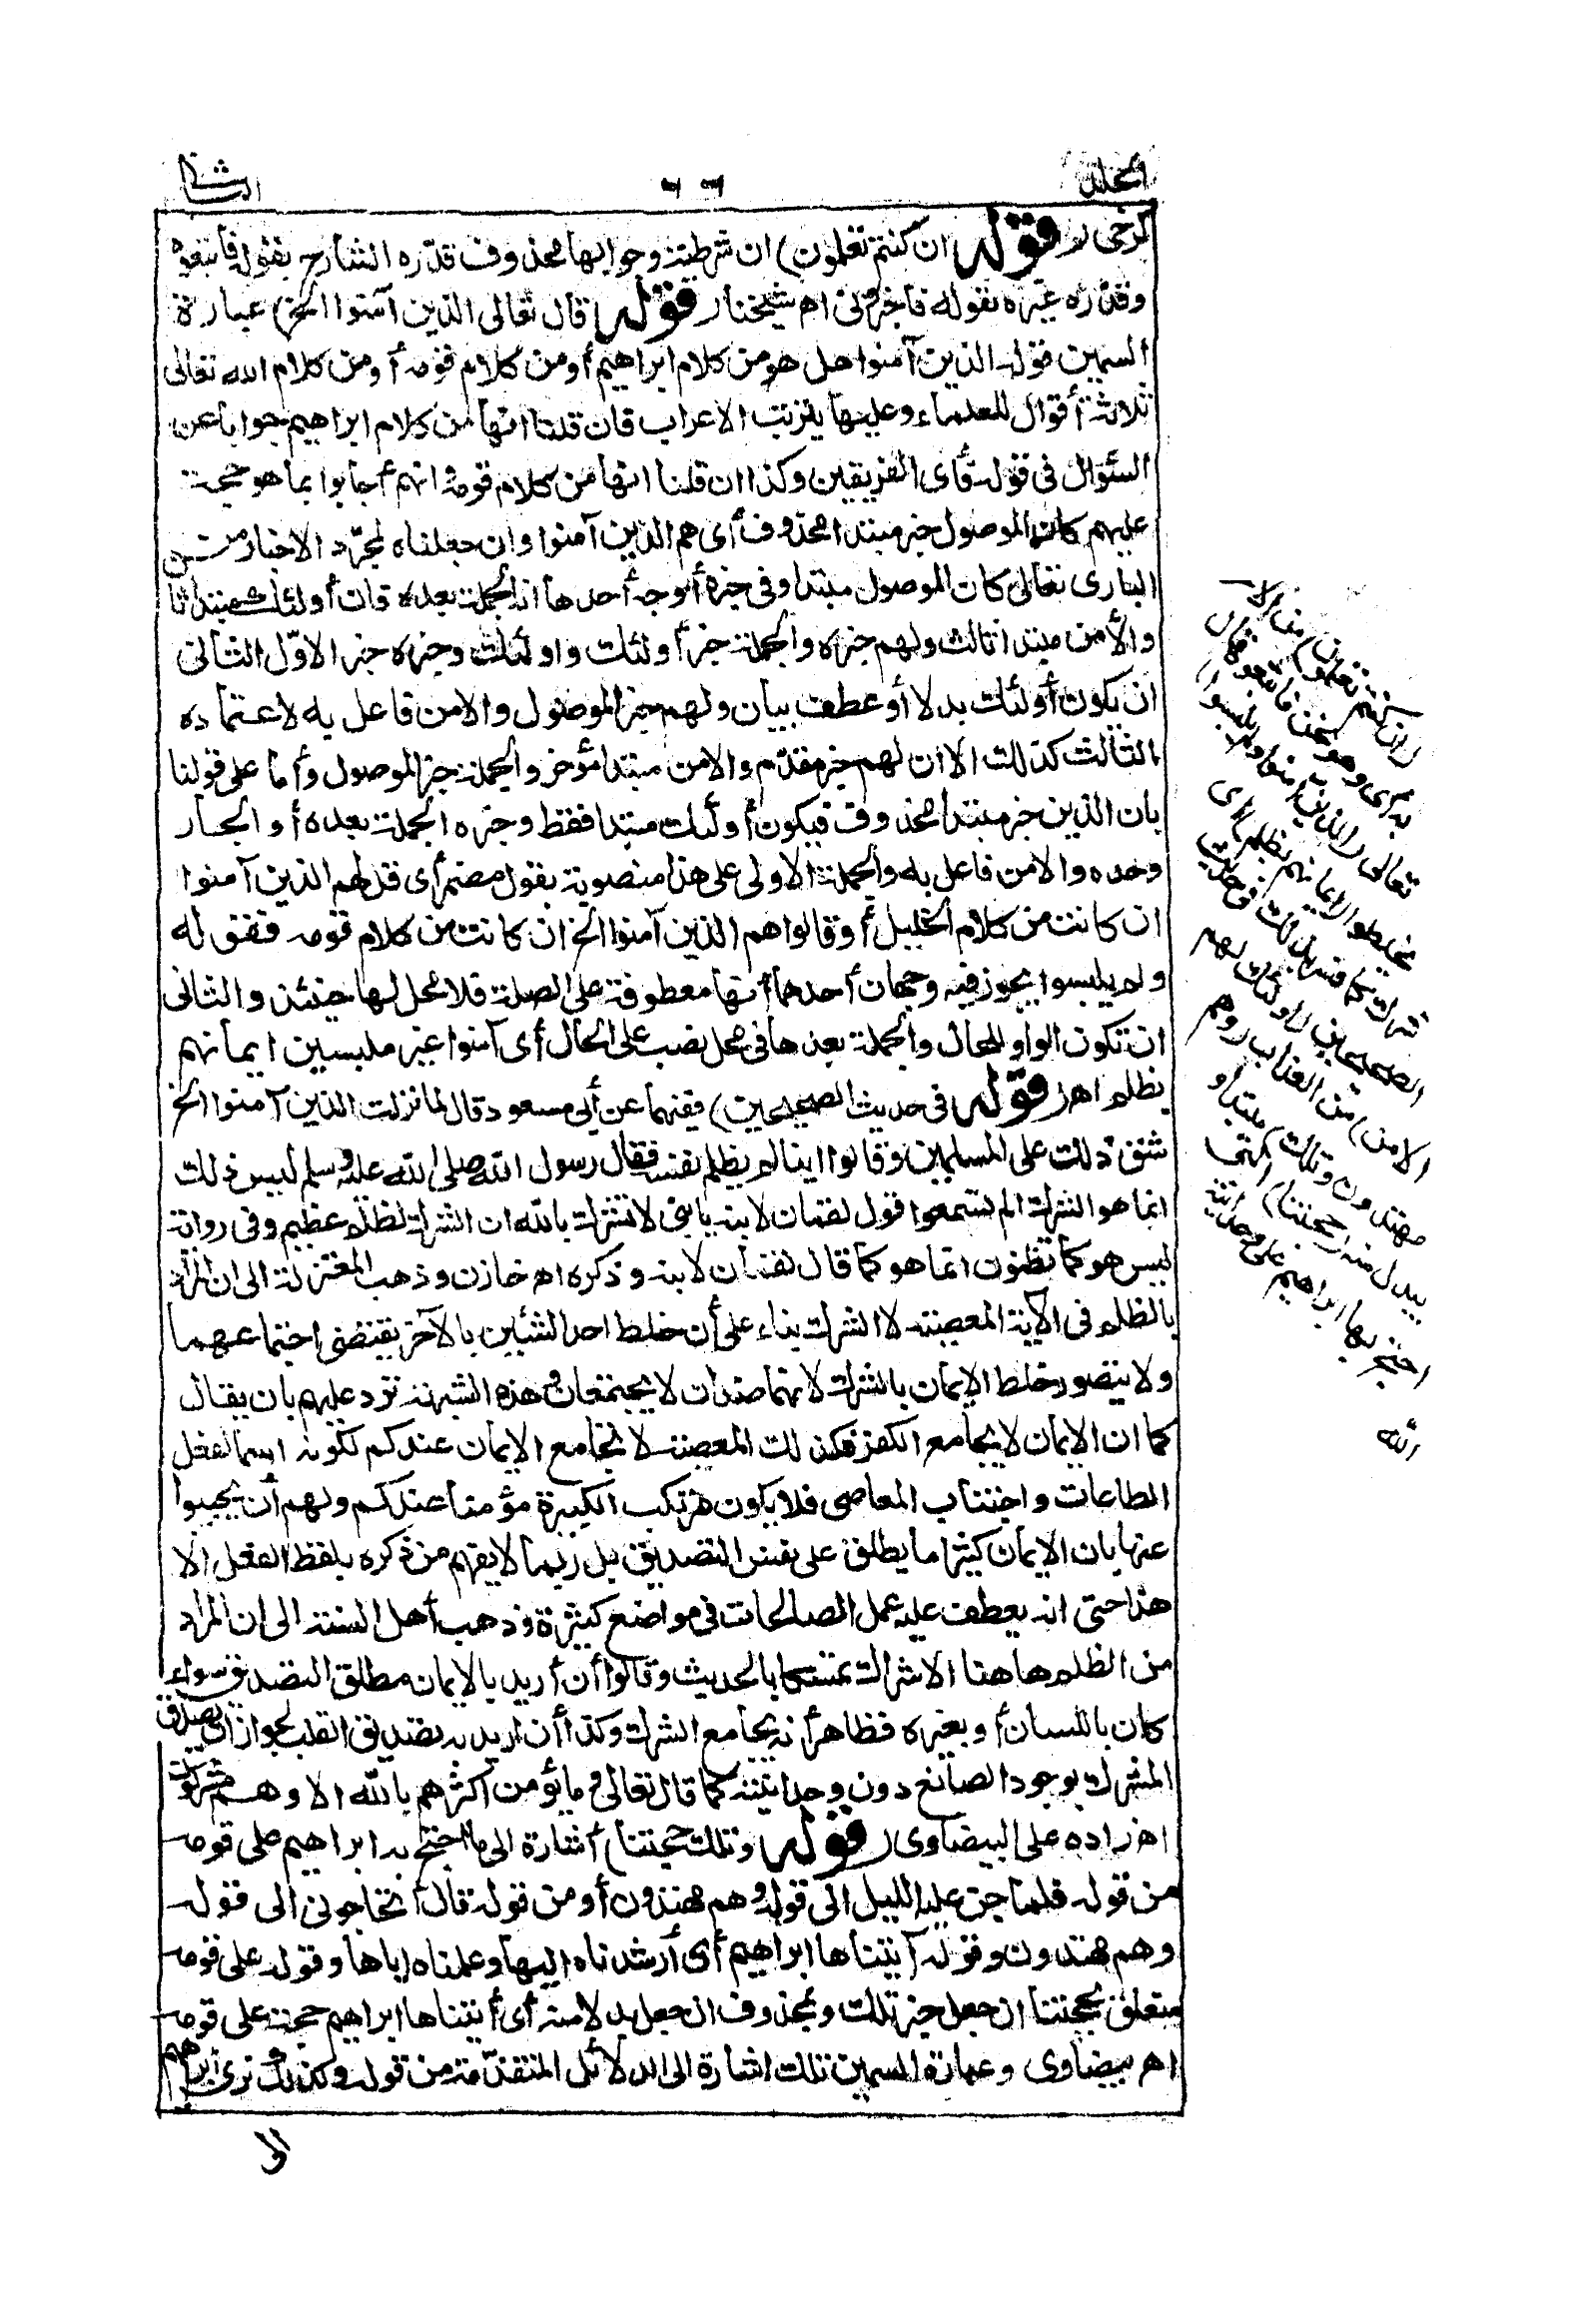 المجلد
٦٦
الثانى
كرخى ( قوله ان كنتم تعلمون) ان شرطية وجوابها محذوف قدّره الشارح بقوله فاتبعوه
وقدّره غيره بقوله فأخبرونى اه شيخنا ( قوله قال تعالى الذين آمنوا الخ) عبارة
السمين قوله الذين آمنوا هل هو من كلام ابراهيم أو من كلام قومه أو من كلام الله تعالى
ثلاثة أقوال للعلماء وعليها يترتب الاعراب فان قلنا انها من كلام ابراهيم جوابا عن
السؤال فى قوله فأى الفريقين وكذا ان قلنا انها من كلام قومه وانهم أجابوا بما هو حجة
عليهم كان الموصول خبر مبتدا محذوف أى هم الذين آمنوا وان جعلناه لمجرّد الاخبار من
البارى تعالى كان الموصول مبتدا وفى خبره أوجه أحدها انه الجملة بعده فان أولئك مبتدا ثان
والأمن مبتدا ثالث ولهم خبره والجملة خبر أولئك واولئك وخبره خبر الاوّل الثانى
ان يكون أولئك بدلا أو عطف بيان ولهم خبر الموصول والامن فاعل به لاعتماده
الثالث كذلك الا ان لهم خبر مقدّم والامن مبتدا مؤخر والجملة خبر الموصول وأما على قولنا
بان الذين خبر مبتدا محذوف فيكون أولئك مبتدا فقط وخبره الجملة بعده أو الجار
وحده والامن فاعل به والجملة الاولى على هذا منصوبة بقول مضمر أى قل لهم الذين آمنوا
ان كانت من كلام الخليل أو قالوا هم الذين آمنوا الخ ان كانت من كلام قومه فقوله
ولم يلبسوا يجوز فيه وجهان أحدهما أنها معطوفة على الصلة فلا محل لها حينئذ والثانى
ان تكون الواو للحال والجملة بعدها فى محل نصب على الحال أى آمنوا غير ملبسين ايمانهم
بظلم اه ( قوله فى حديث الصحيحين) ففيهما عن أبى مسعود قال لما نزلت الذين آمنوا الخ
شق ذلك على المسلمين وقالوا اينا لم يظلم نفسه فقال رسول الله صلى الله عليه وسلم ليس ذلك
انما هو الشرك الم تسمعوا قول لقمان لابنه يا بنى لا تشرك بالله ان الشرك لظلم عظيم وفى رواية
ليس هو كما تظنون انما هو كما قال لقمان لابنه وذكره اه خازن وذهب المعتزلة الى ان المراد
بالظلم فى الآية المعصية لا الشرك بناء على أن خلط احد الشيئين بالآخر يقتضى اجتماعهما
ولا يتصور خلط الايمان بالشرك لانهما ضدان لا يجتمعان وهذه الشبهة ترد عليهم بان يقال
كما ان الايمان لا يجامع الكفر فكذلك المعصية لا تجامع الايمان عندكم لكونه اسما لفعل
الطاعات واجتناب المعاصى فلا يكون مرتكب الكبيرة مؤمنا عندكم ولهم أن يجيبوا
عنها بان الايمان كثيرا ما يطلق على نفس التصديق بل ربما لا يفهم من ذكره بلفظ الفعل الا
هذا حتى انه يعطف عليه عمل الصالحات فى مواضع كثيرة وذهب أهل السنة الى ان المراد
من الظلم هاهنا الاشراك تمسكا بالحديث وقالوا أن أريد بالايمان مطلق التصديق سواء
كان باللسان أو بغيره فظاهر أنه يجامع الشرك وكذا أن اريد به تصديق القلب لجواز أن يصدق
المشرك بوجود الصانع دون وحدانيته كما قال تعالى وما يؤمن أكثرهم بالله الا وهم مشركون
اه زاده على البيضاوى ( قوله وتلك حجتنا) أشارة الى ما احتج به ابراهيم على قومه
من قوله فلما جن عليه الليل الى قوله وهم مهتدون أو من قوله قال أتحاجونى الى قوله
وهم مهتدون وقوله آتيناها ابراهيم أى أرشدناه اليها وعلمناه اياها وقوله على قومه
متعلق بحجتنا ان جعل خبر تلك وبمحذوف ان جعل بدلا منه أى أتيناها ابراهيم حجة على قومه
اه بيضاوى وعبارة السمين تلك اشارة الى الدلائل المتقدّمة من قوله وكذلك نرى ابراهيم
(ان كنتم تعلمون) من الا
به أى وهو نحن فاتبعوه قال
تعالى (الذين آمنوا ولم يلبسوا)
يخلطوا (ايمانهم بظلم) أى
شرك كما فسر بذلك فى حديث
الصحيحين (أولئك لهم
الامن) من العذاب (وهم
مهتدون وتلك) مبتدأ و
يبدل منه (حجتنا) التى
احتج بها ابراهيم على وحدانية
الله
الى